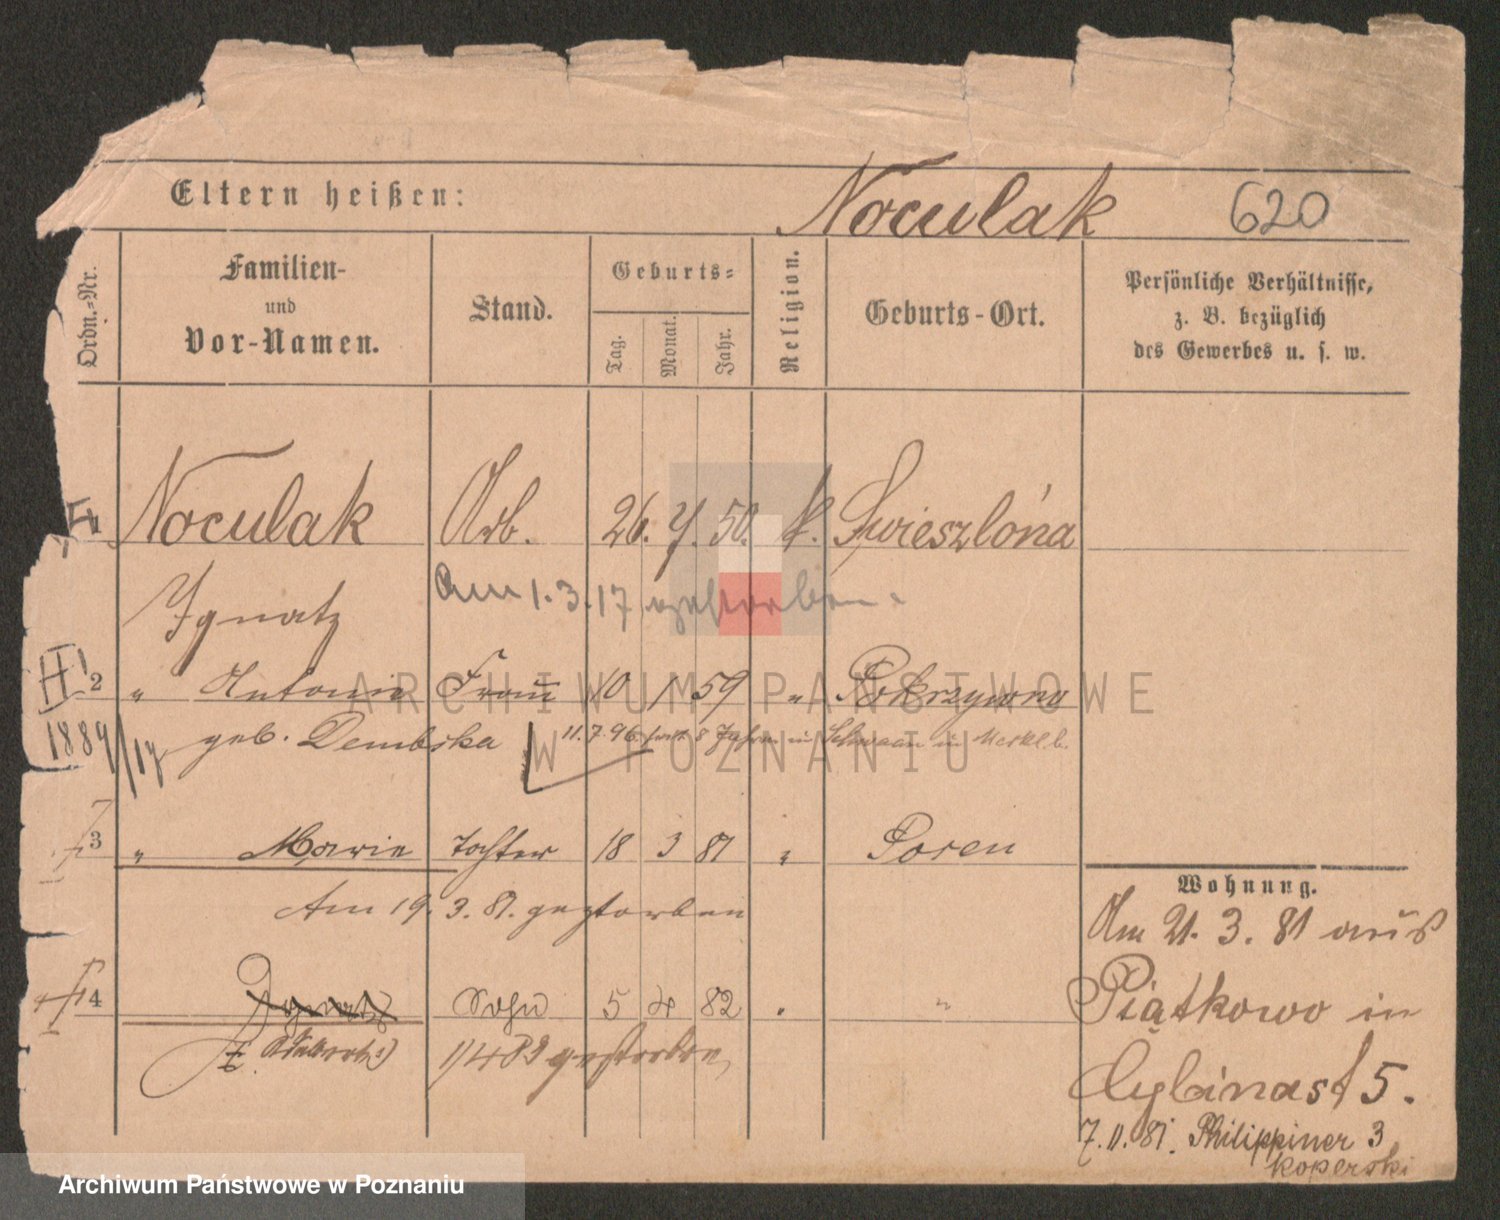 Eltern heißen: Noculak 620
Ordn.-Nr. Familien- und Vor-Namen. Stand. Geburts= Tag. Monat. Jahr. Religion. Geburts-Ort. Persönliche Verhältnisse, z. B. bezüglich des Gewerbes u. s. w.
1 Noculak Arb. 26. 7. 50. k. Swieszlóna
Ignatz
Am 1.3.17 gestorben.
2 " Antonie Frau 10 1 59 " Pokrzywno
1889/17 geb. Dembska 11.7.96 8 Jahre in Schwaan in Mecklb.
3 " Marie Tochter 18 3 81 " Posen
Am 19. 3. 81. gestorben
4 Ignatz Sohn 5 4 82 " "
gestorben
Wohnung.
Am 21. 3. 81 aus
Piątkowo in
Cybinast 5.
7. 11. 81. Philippiner 3
Koperski
ARCHIWUM PAŃSTWOWE
W POZNANIU
Archiwum Państwowe w Poznaniu